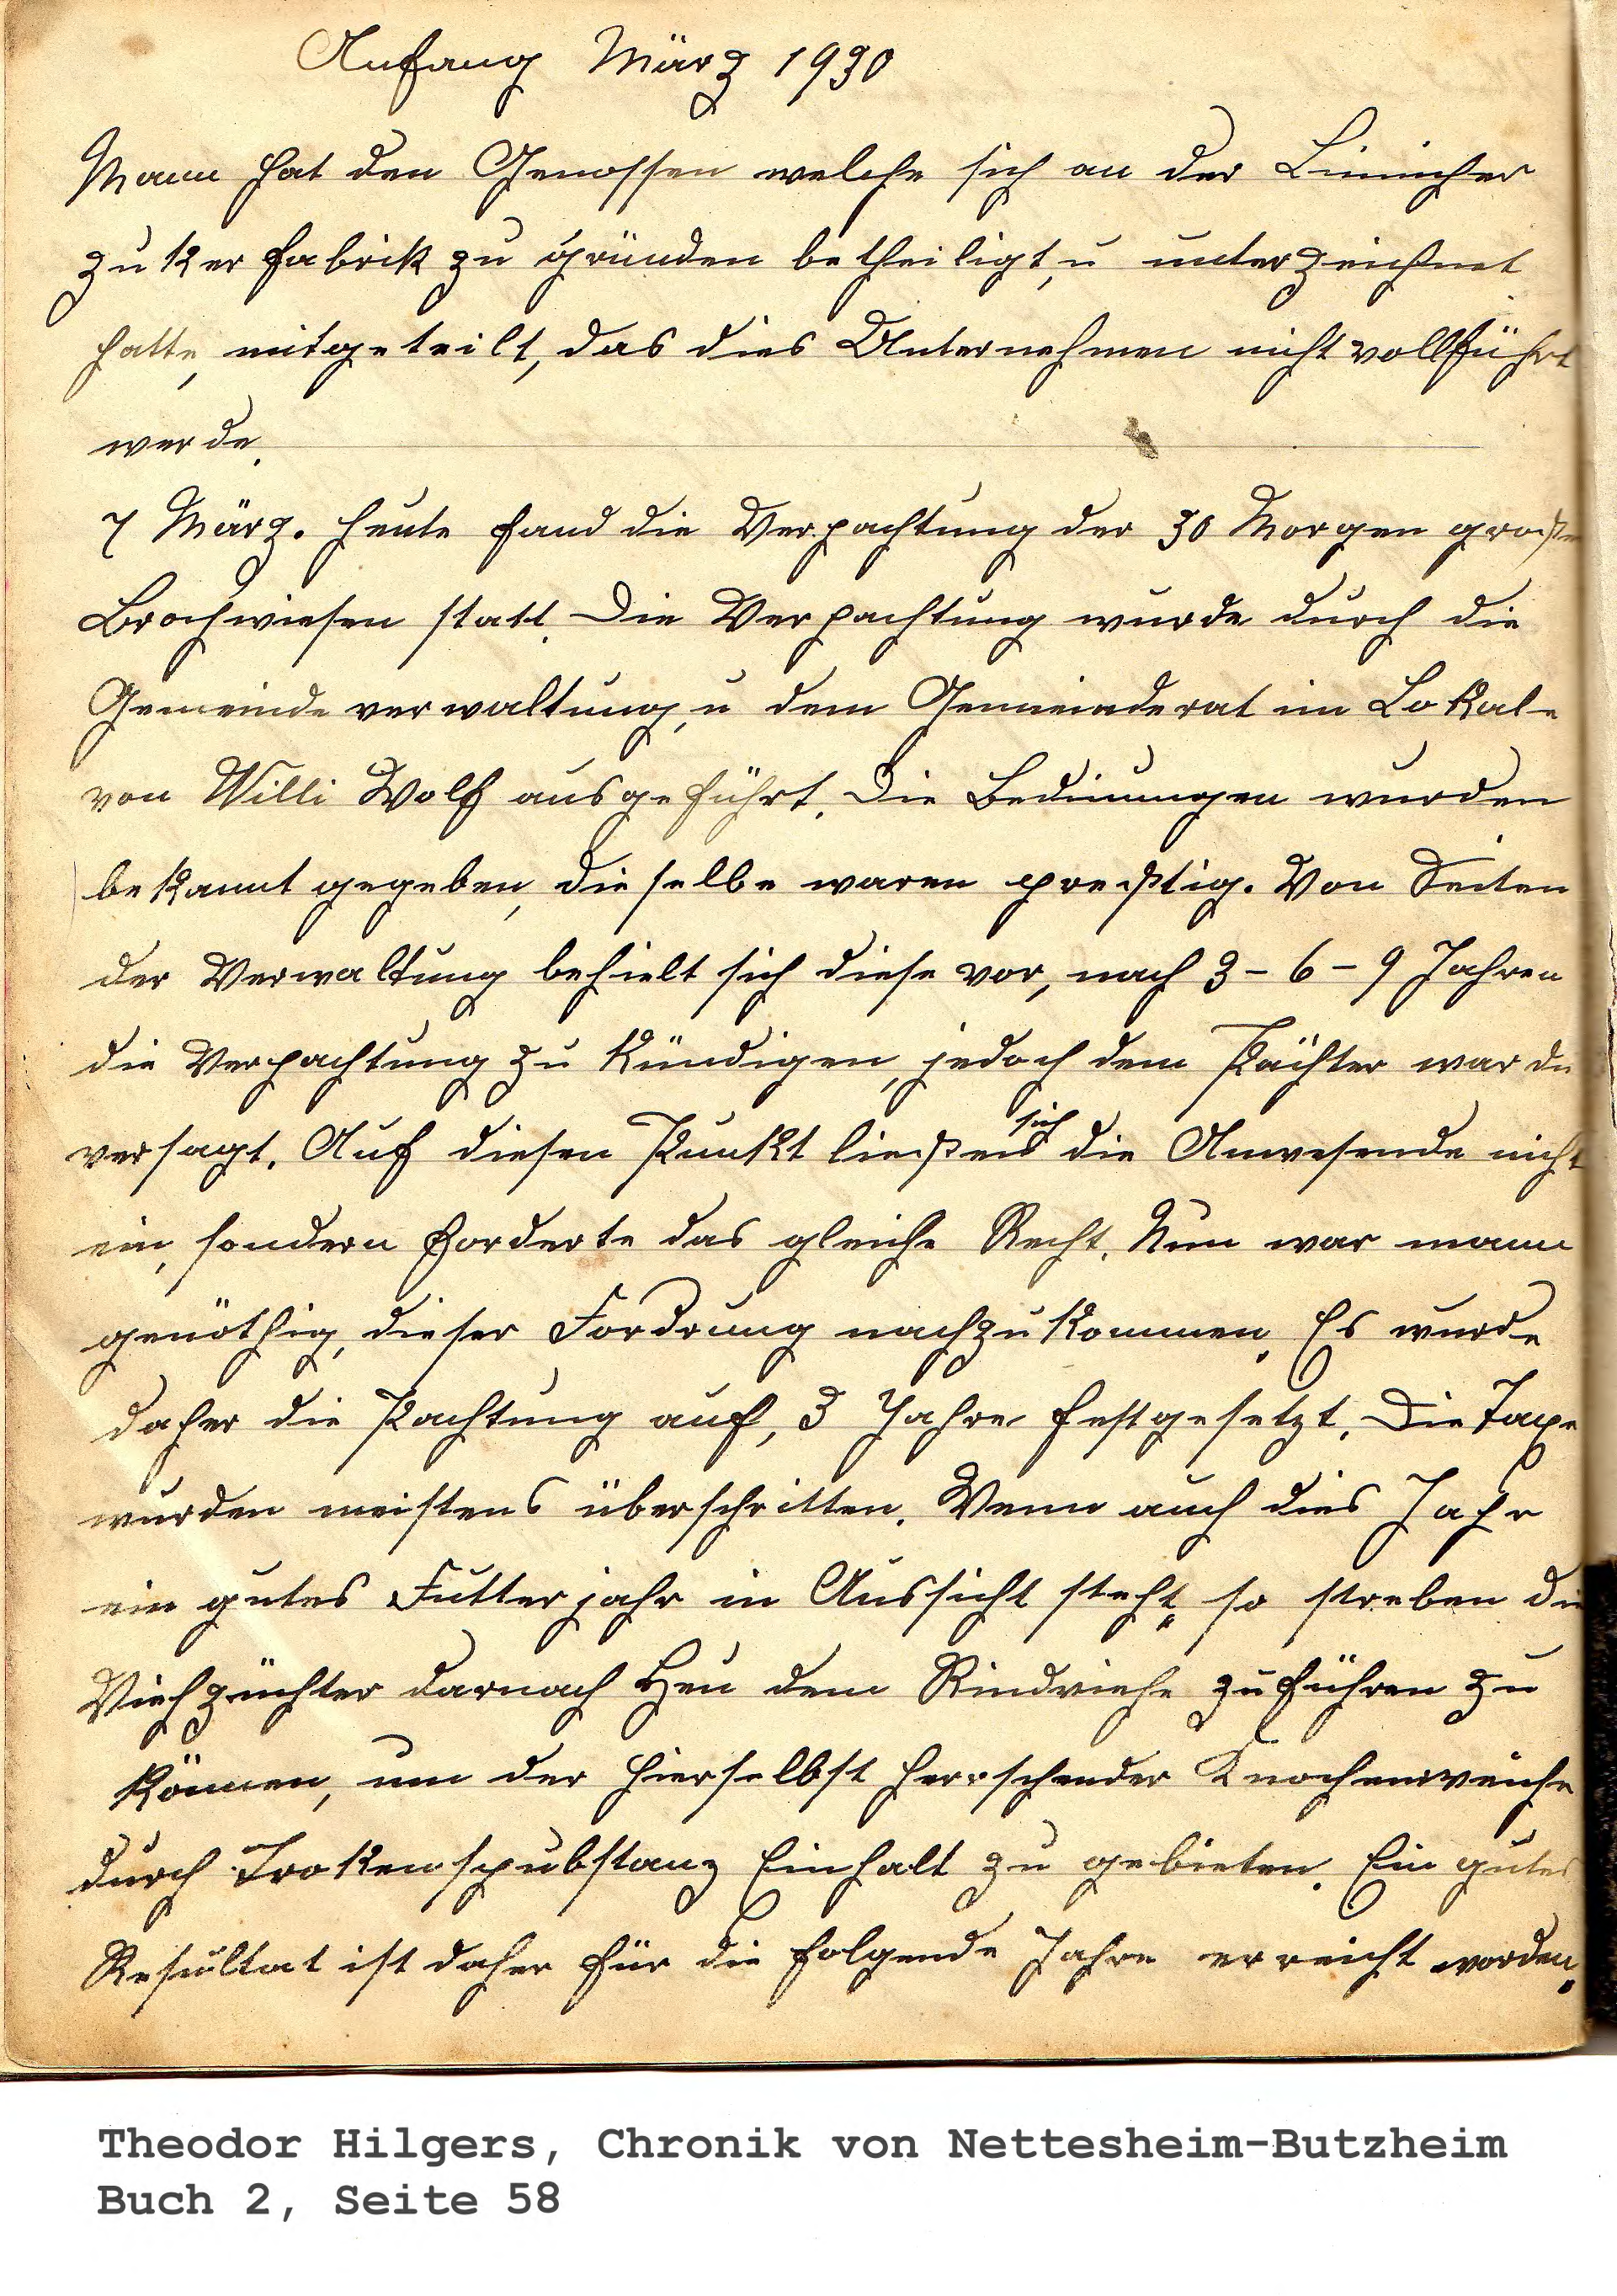 Anfang März 1930
Mann hat den Genossen welche sich an der Linnicher
Zukerfabrik zu gründen betheiligt, u unterzeichnet
hatte, mitgeteilt, das dies Unternehmen nicht vollführt
werde.
7 März. Heute fand die Verpachtung der 30 Morgen große
Brochwiesen statt. Die Verpachtung wurde durch die
Gemeindeverwaltung, u dem Gemeinderat im Lokale
von Willi Wolf ausgeführt. Die Bedinungen wurden
bekannt gegeben, dieselbe waren Von Seiten
der Verwaltung behielt sich diese vor, nach 3-6-9 Jahren
die Verpachtung zu kündigen, jedoch dem Pächter war di
versagt. Auf diesen Punkt ließen sich die Anwesende nicht
ein, sondern forderte das gleiche Recht. Nun war mann
genöthig, dieser Fordrung nachzukommen. Es wurde
daher die Pachtung auf, 3 Jahre festgesetzt. Die Taxe
wurden meistens überschritten. Wenn auch dies Jahr
ein gutes Futterjahr in Aussicht steht, so streben die
Viehzüchter darnach Heu dem Rindviehe zuführen zu
können, um der hierselbst herrschender Knochenweiche
durch Trokenspubstanz Einhalt zu gebieten. Ein gutes
Resultat ist daher für die folgende Jahre erreicht worden.
Theodor Hilgers, Chronik von Nettesheim-Butzheim
Buch 2, Seite 58